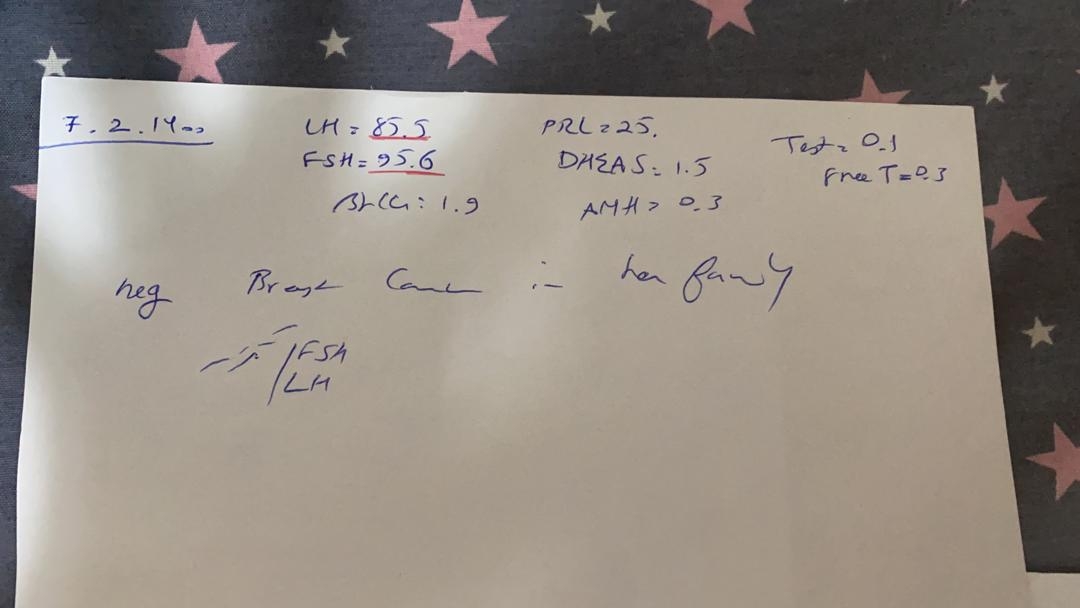 7.2.1400
LH = 85.5
FSH = 95.6
βhCG: 1.9
PRL = 25.
DHEAS: 1.5
AMH > 0.3
Test = 0.1
Free T = 0.3
neg Breast Cancer in her family
/FSH
/LH